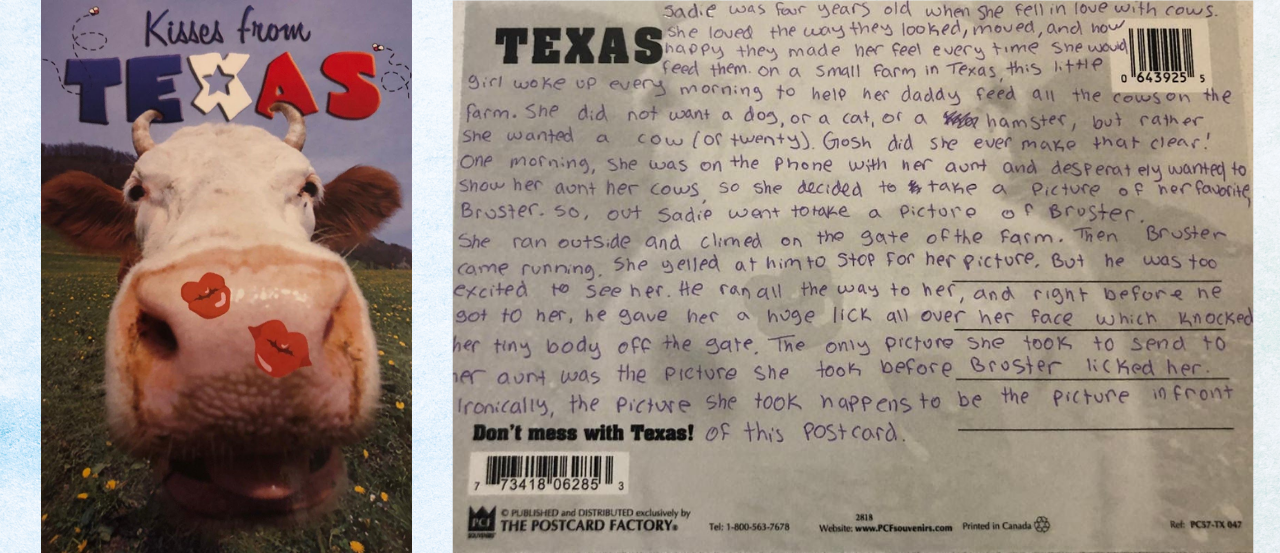 Kisses from
TEXAS
Sadie was four years old when she fell in love with cows.
TEXAS
she loved the way they looked, moved, and how
happy they made her feel every time she would
feed them. on a small farm in Texas, this little
0 643925 5
girl woke up every morning to help her daddy feed all the cows on the
farm. She did not want a dog, or a cat, or a hamster, but rather
she wanted a cow (or twenty). Gosh did she ever make that clear!
One morning, she was on the phone with her aunt and desperately wanted to
show her aunt her cows, so she decided to take a picture of her favorite,
Bruster. So, out Sadie went to take a picture of Bruster.
She ran outside and climed on the gate of the farm. Then Bruster
came running. She yelled at him to stop for her picture. But he was too
excited to see her. He ran all the way to her, and right before he
got to her, he gave her a huge lick all over her face which knocked
her tiny body off the gate. The only picture she took to send to
her aunt was the picture she took before Bruster licked her.
Ironically, the picture she took happens to be the picture in front
Don't mess with Texas! of this postcard.
7 73418 06285 3
PCF
SOUVENIRS
© PUBLISHED and DISTRIBUTED exclusively by
THE POSTCARD FACTORY®
Tel: 1-800-563-7678
2818
Website: www.PCFsouvenirs.com
Printed in Canada
Ref: PC57-TX 047